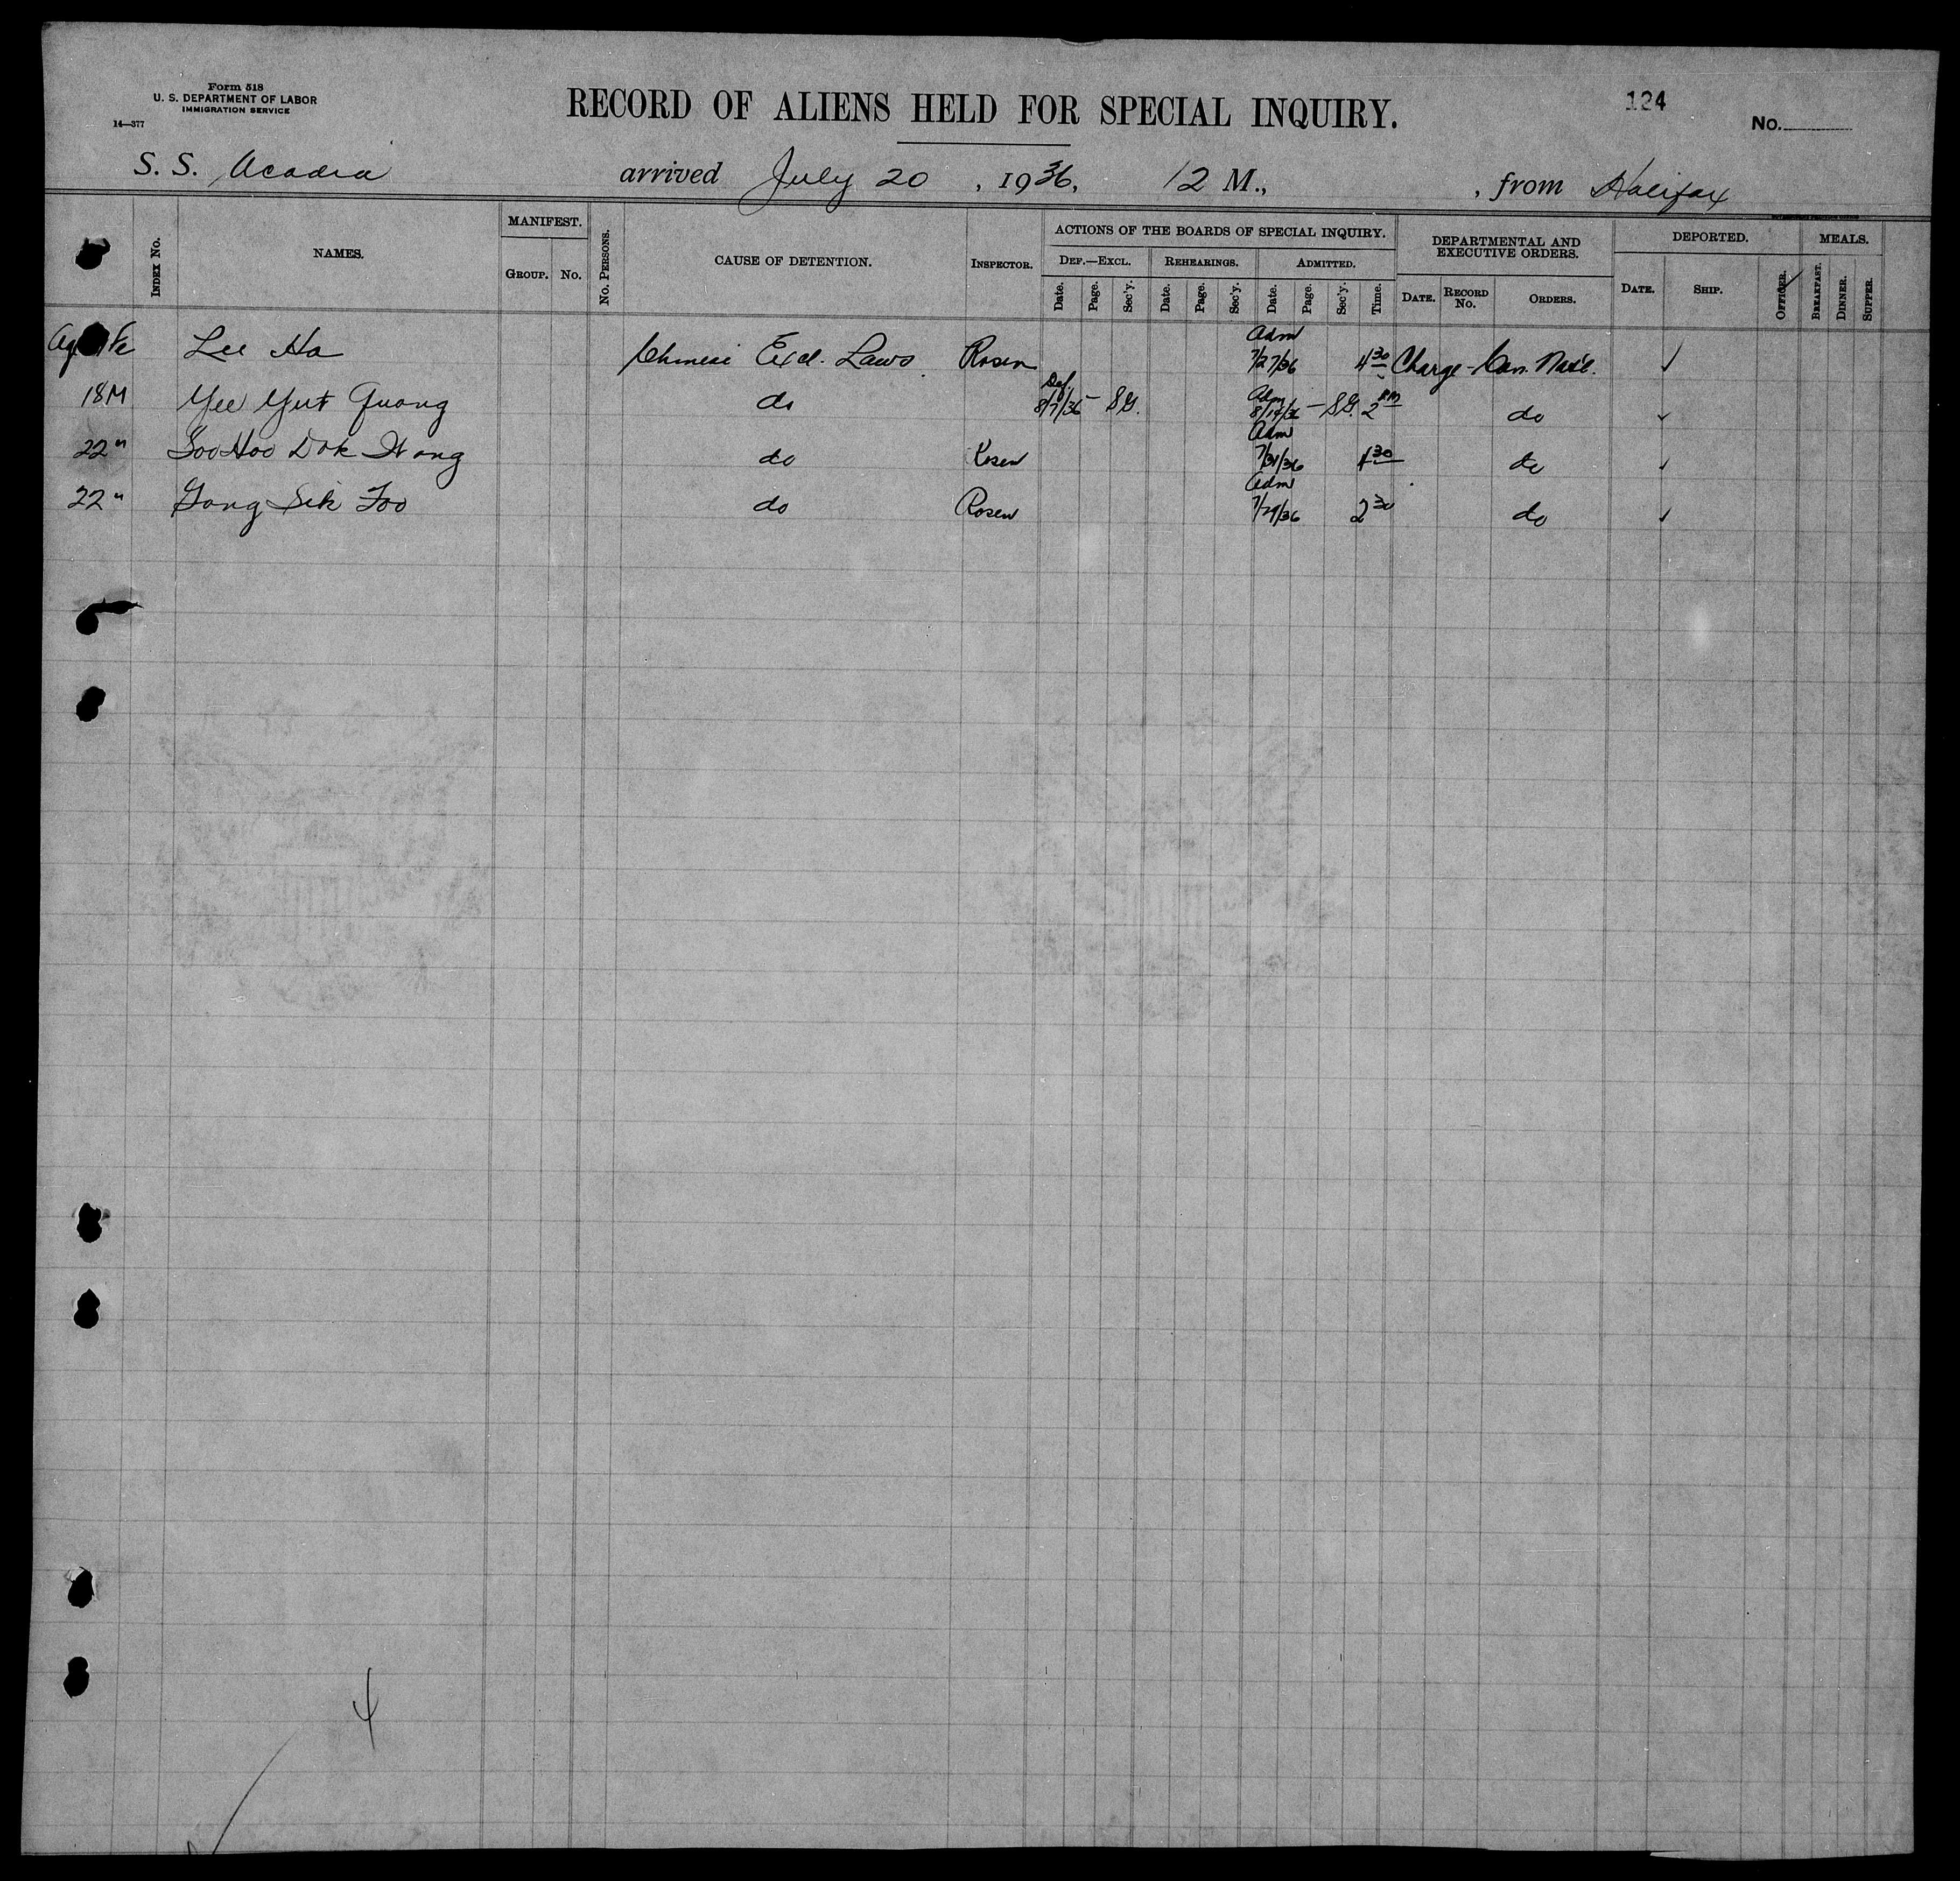 Form 518
U. S. DEPARTMENT OF LABOR
IMMIGRATION SERVICE
14—377
RECORD OF ALIENS HELD FOR SPECIAL INQUIRY.
124
No.
S. S. Acadia arrived July 20, 1936, 12 M., , from Halifax
INDEX NO.
NAMES.
MANIFEST.
GROUP. NO.
NO. PERSONS.
CAUSE OF DETENTION.
INSPECTOR.
ACTIONS OF THE BOARDS OF SPECIAL INQUIRY.
DEF.—EXCL. REHEARINGS. ADMITTED.
Date. Page. Sec'y. Date. Page. Sec'y. Date. Page. Sec'y. Time.
DEPARTMENTAL AND EXECUTIVE ORDERS.
DATE. RECORD NO. ORDERS.
DEPORTED.
DATE. SHIP. OFFICER.
MEALS.
BREAKFAST. DINNER. SUPPER.
Lee Ha Chinese Excl. Laws. Rosen Adm 7/27/36 4 30 Charge - Can. Nat'l. ✓
18M Yee Yut Quong do Def. 8/7/36 - SG. Adm 8/14/36 - SG. 2 PM do ✓
22 " Soo Hoo Dok do Rosen Adm 7/31/36 4 30 do ✓
22 " Gong Sik Foo do Rosen Adm 7/29/36 2 30 do ✓
4